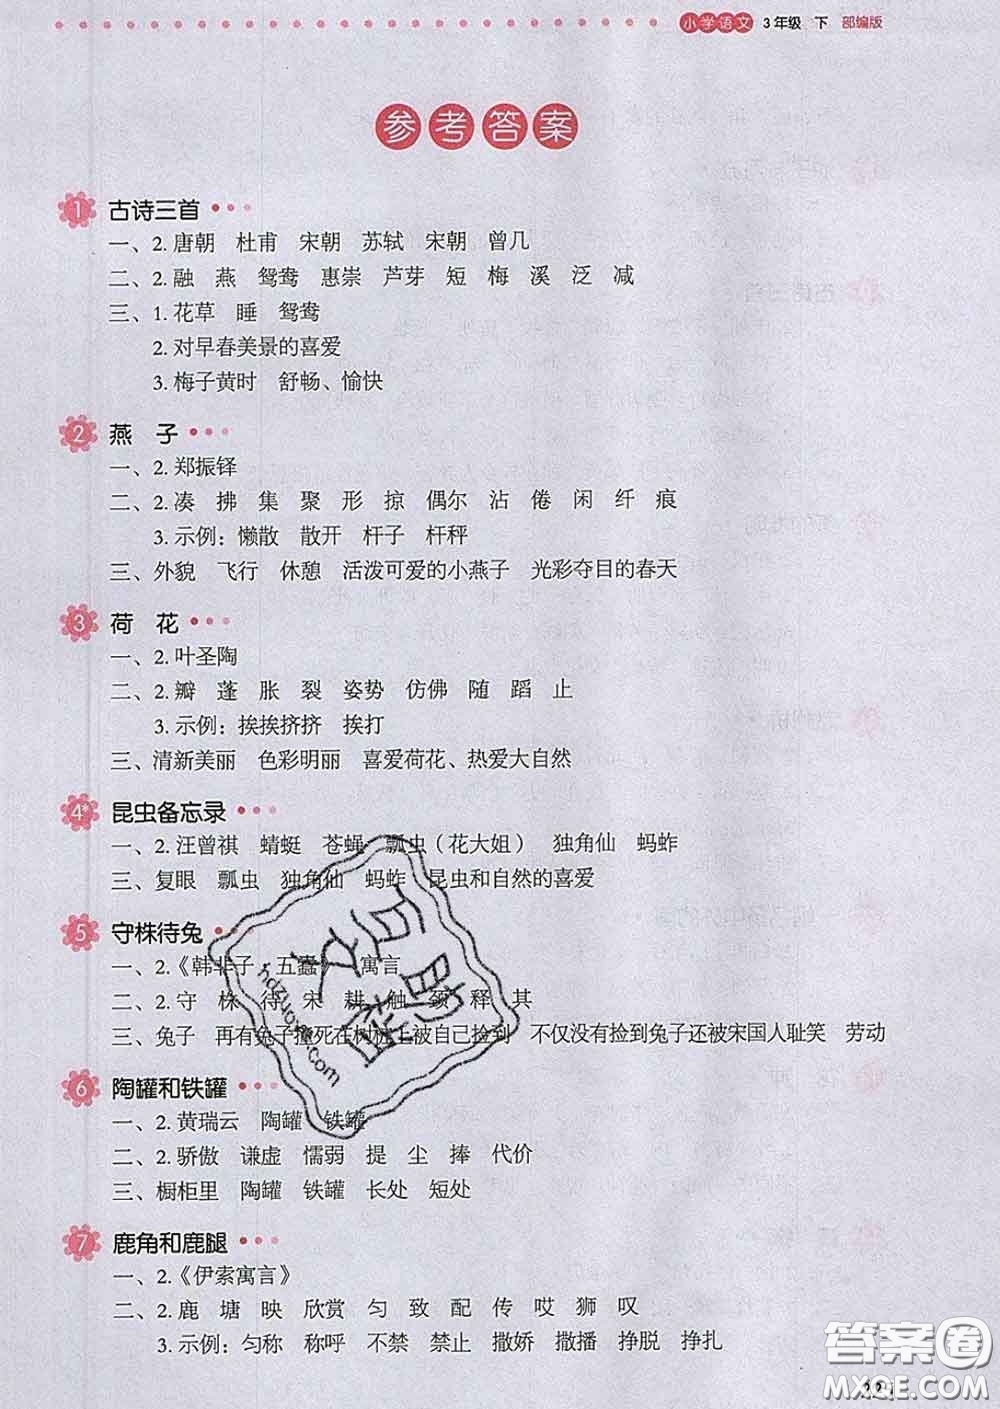 小学语文 3年级 下 部编版
参考答案
1 古诗三首
一、2. 唐朝 杜甫 宋朝 苏轼 宋朝 曾几
二、2. 融 燕 鸳鸯 惠崇 芦芽 短 梅 溪 泛 减
三、1. 花草 睡 鸳鸯
2. 对早春美景的喜爱
3. 梅子黄时 舒畅、愉快
2 燕 子
一、2. 郑振铎
二、2. 凑 拂 集 聚 形 掠 偶尔 沾 倦 闲 纤 痕
3. 示例：懒散 散开 杆子 杆秤
三、外貌 飞行 休憩 活泼可爱的小燕子 光彩夺目的春天
3 荷 花
一、2. 叶圣陶
二、2. 瓣 蓬 胀 裂 姿势 仿佛 随 蹈 止
3. 示例：挨挨挤挤 挨打
三、清新美丽 色彩明丽 喜爱荷花、热爱大自然
4* 昆虫备忘录
一、2. 汪曾祺 蜻蜓 苍蝇 瓢虫（花大姐） 独角仙 蚂蚱
三、复眼 瓢虫 独角仙 蚂蚱 昆虫和自然的喜爱
5 守株待兔
一、2.《韩非子·五蠹》 寓言
二、2. 守 株 待 宋 耕 触 颈 释 其
三、兔子 再有兔子撞死在树桩上被自己捡到 不仅没有捡到兔子还被宋国人耻笑 劳动
6 陶罐和铁罐
一、2. 黄瑞云 陶罐 铁罐
二、2. 骄傲 谦虚 懦弱 提 尘 捧 代价
三、橱柜里 陶罐 铁罐 长处 短处
7 鹿角和鹿腿
一、2.《伊索寓言》
二、2. 鹿 塘 映 欣赏 匀 致 配 传 哎 狮 叹
3. 示例：匀称 称呼 不禁 禁止 撒娇 撒播 挣脱 挣扎
答案圈
MXQE.COM